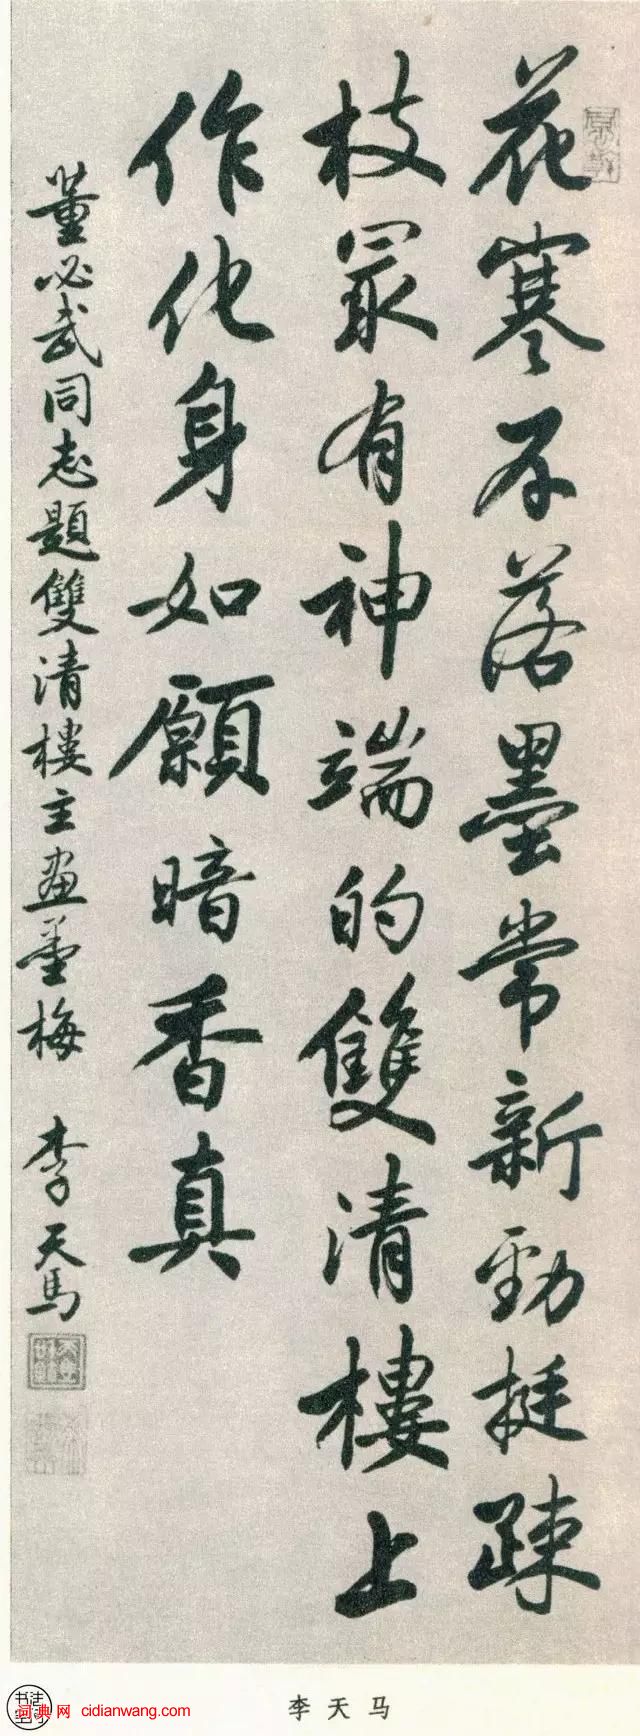 花寒不落墨常新勁挺疎
枝冣有神端的雙清樓上
作化身如願暗香真
董必武同志題雙清樓主畫墨梅 李天馬
李天马
词典网 cidianwang.com